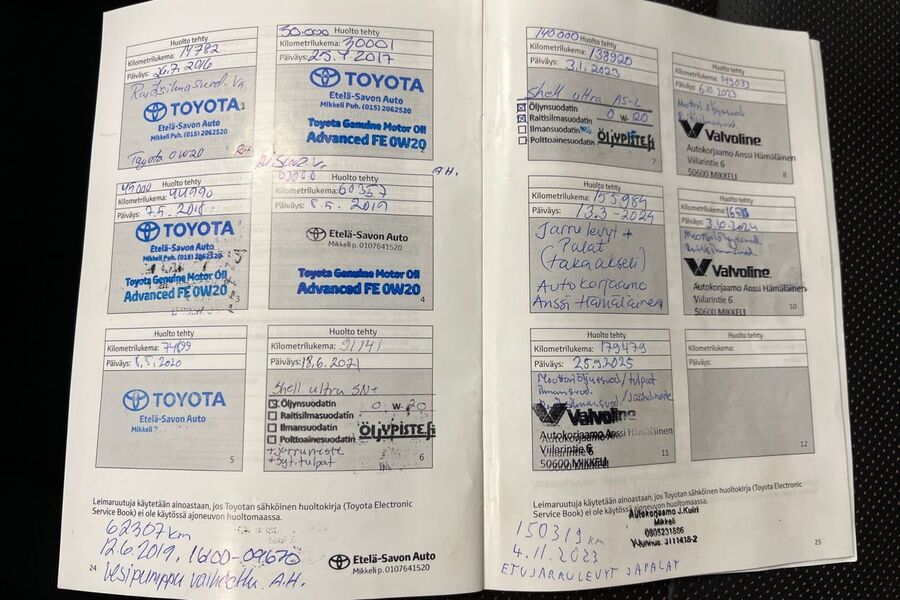 Huolto tehty
Kilometrilukema: 14782
Päiväys: 26.7.2016
TOYOTA
Etelä-Savon Auto
Mikkeli Puh. (015) 2062520
Toyota 0W20
30.000 Huolto tehty
Kilometrilukema: 30001
Päiväys: 25.4.2017
TOYOTA
Etelä-Savon Auto
Mikkeli Puh. (015) 2062520
Toyota Genuine Motor Oil
Advanced FE 0W20
2
A.H.
45000 Huolto tehty
Kilometrilukema: 44990
Päiväys: 7.5.2018
TOYOTA
Etelä-Savon Auto
Mikkeli Puh. (015) 2062520
Toyota Genuine Motor Oil
Advanced FE 0W20
3
60000 Huolto tehty
Kilometrilukema: 60357
Päiväys: 8.5.2019
Etelä-Savon Auto
Mikkeli p. 0107641520
Toyota Genuine Motor Oil
Advanced FE 0W20
4
Huolto tehty
Kilometrilukema:
Päiväys: 8.5.2020
TOYOTA
Etelä-Savon Auto
Mikkeli P
5
Huolto tehty
Kilometrilukema: 91141
Päiväys: 18.6.2021
Shell ultra SN+
Öljynsuodatin 0 W-20
Raitisilmasuodatin
Ilmansuodatin
Polttoainesuodatin ÖLJYPISTE.fi
+ Jarruneste
+ Syt.tulpat
6
Leimaruutuja käytetään ainoastaan, jos Toyotan sähköinen huoltokirja (Toyota Electronic
Service Book) ei ole käytössä ajoneuvon huoltomaassa.
62307 km
12.6.2019, 16100-09670
Vesipumppu vaihdettu A.H.
Etelä-Savon Auto
Mikkeli p. 0107641520
24
140000 Huolto tehty
Kilometrilukema: 138920
Päiväys: 3.1.2023
Shell ultra A5-L
Öljynsuodatin 0 W-20
Raitisilmasuodatin
Ilmansuodatin ÖLJYPISTE.fi
Polttoainesuodatin
7
Huolto tehty
Kilometrilukema: 149033
Päiväys: 6.10.2023
Valvoline
Autokorjaamo Anssi Hämäläinen
Viilarintie 6
50600 MIKKELI
8
Huolto tehty
Kilometrilukema: 155984
Päiväys: 13.3-2024
Jarrulevyt +
Palat
(taka akseli)
Autokorjaamo
Anssi Hämäläinen
Huolto tehty
Kilometrilukema:
Päiväys: 3.10.2024
Valvoline
Autokorjaamo Anssi Hämäläinen
Viilarintie 6
50600 MIKKELI
10
Huolto tehty
Kilometrilukema: 179479
Päiväys: 25.9.2025
Valvoline
Autokorjaamo Anssi Hämäläinen
Viilarintie 6
50600 MIKKELI
11
Huolto tehty
Kilometrilukema:
Päiväys:
12
Leimaruutuja käytetään ainoastaan, jos Toyotan sähköinen huoltokirja (Toyota Electronic
Service Book) ei ole käytössä ajoneuvon huoltomaassa.
Autokorjaamo J.Kuiri
Mikkeli
150319 km
4.11.2023
ETUJARRULEVYT JA PALAT
25